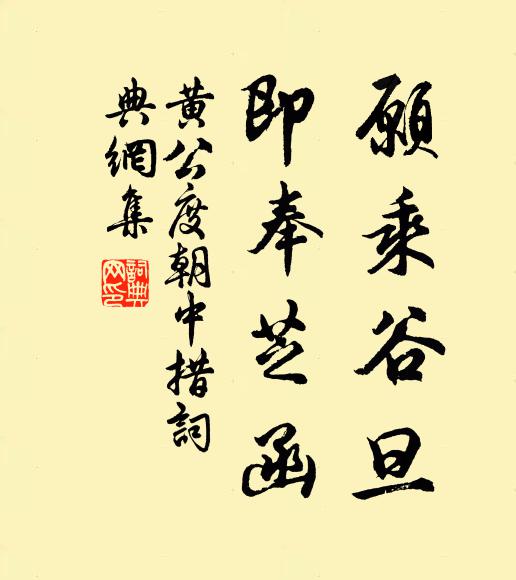 願乘谷旦
即奉芝函
黄公度朝中措詞
典網集
詞典
网印